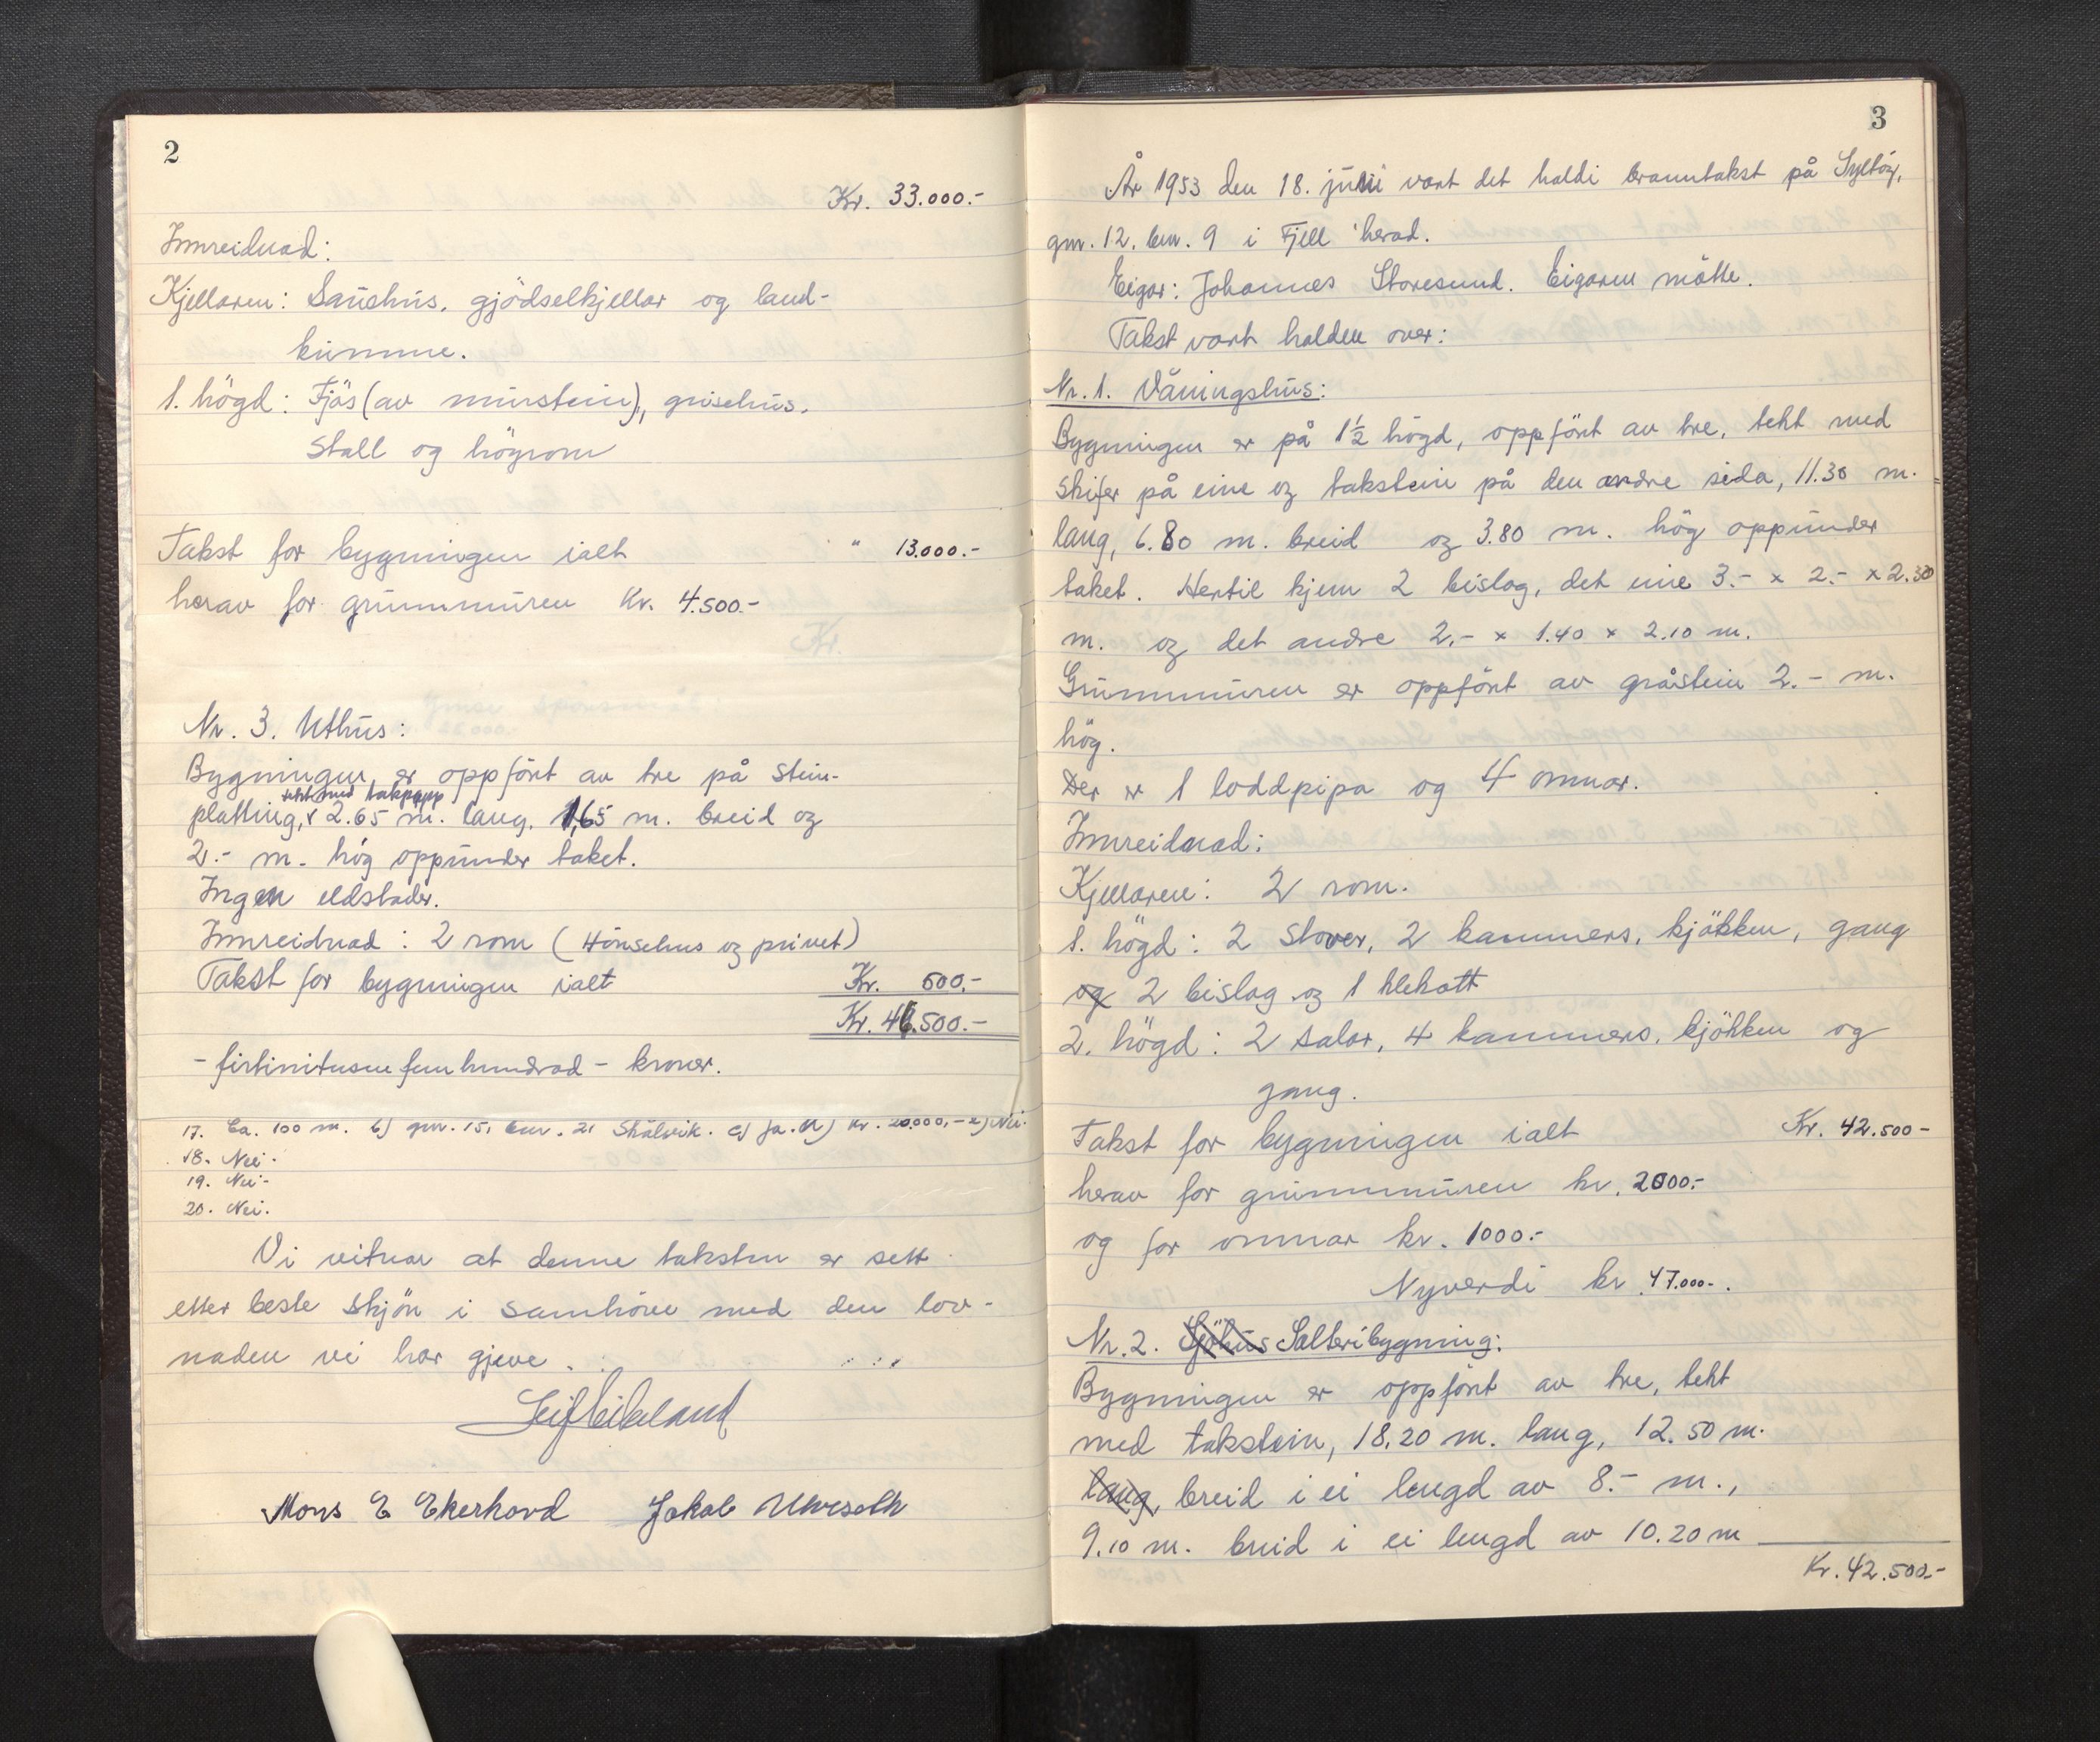 2
Kr. 33.000.-
Innreidnad:
Kjellaren: Sauehus, gjödselkjellar og land-
kumme.
1. högd: Fjös (av murstein), grisehus,
stall og högrom
Takst for bygningen ialt " 13.000.-
herav for grunnmuren Kr. 4.500.-
Nr. 3. Uthus:
Bygningen er oppfört av tre på stein-
tekt med takpapp
platting, 2.65 m. lang. 1,65 m. breid og
2.- m. hög oppunder taket.
Ingen eldstader.
Innreidnad: 2 rom (Hönsehus og privet)
Takst for bygningen ialt Kr. 500.-
Kr. 46.500.-
- firtinitusen fem hundrad - kroner.
17. Ca. 100 m. b) gnr. 15, bnr. 21 Skålvik. c) Ja. d) Kr. 20.000,- e) Nei.
18. Nei.
19. Nei.
20. Nei.
Vi vitnar at denne taksten er sett
etter beste skjön i samhöve med den lov-
naden vi har gjeve.
Leif
Mons E Ekerhovd Jakob
3
År 1953 den 18. juni vart det haldi branntakst på Syltöy,
gnr. 12, bnr. 9 i Fjell herad.
Eigar: Johannes Storesund. Eigaren mötte.
Takst vart halden over:
Nr. 1. Våningshus:
Bygningen er på 1½ högd, oppfört av tre, tekt med
skifer på eine og takstein på den andre sida, 11.30 m.
lang, 6.80 m. breid og 3.80 m. hög oppunder
taket. Hertil kjem 2 bislag, det eine 3.- x 2.- x 2.30
m. og det andre 2.- x 1.40 x 2.10 m.
Grunnmuren er oppfört av gråstein 2.- m.
hög.
Der er 1 loddpipa og 4 omnar.
Innreidnad:
Kjellaren: 2 rom.
1. högd: 2 stover, 2 kammers, kjökken, gang
og 2 bislag og 1 klekott
2. högd: 2 salar, 4 kammers, kjökken og
gang.
Takst for bygningen ialt Kr. 42.500-
herav for grunnmuren kr. 2000.-
og for omnar kr. 1000.-
Nyverdi kr. 47.000.-.
Nr. 2. Sjöhus Salteribygning:
Bygningen er oppfört av tre, tekt
med takstein, 18.20 m. lang, 12.50 m.
lang, breid i ei lengd av 8.- m.,
9.10 m. breid i ei lengd av 10.20 m
Kr. 42.500.-